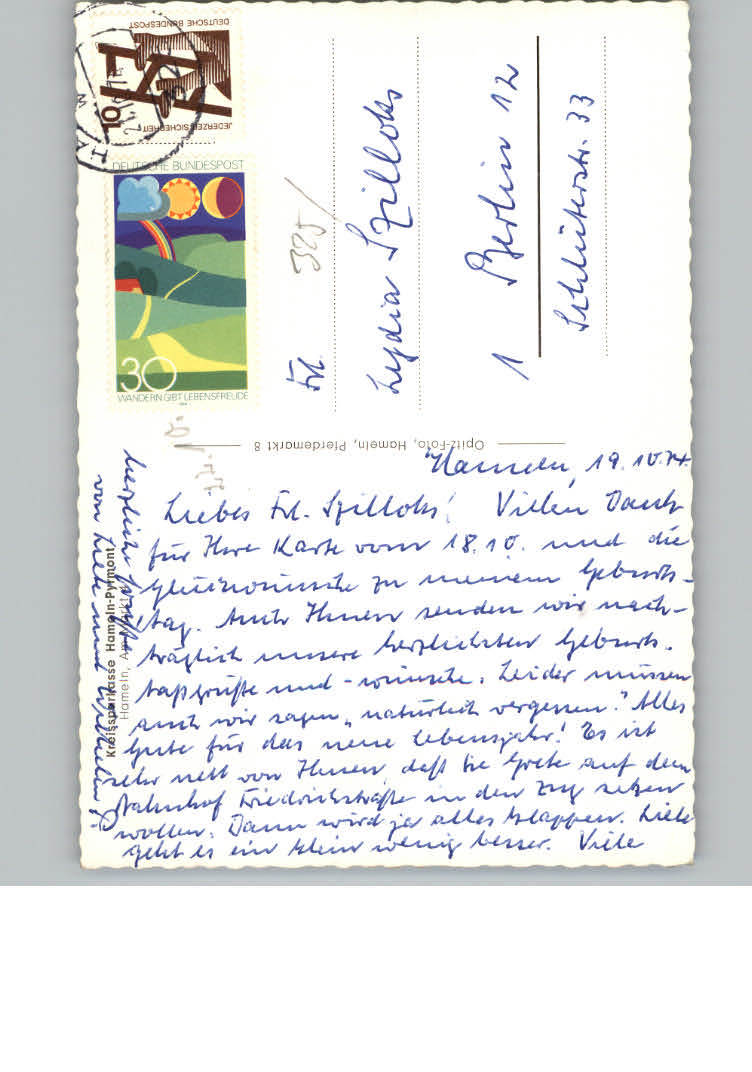 DEUTSCHE BUNDESPOST
10
JEDERZEIT SICHERHEIT
DEUTSCHE BUNDESPOST
30
WANDERN GIBT LEBENSFREUDE
325/
Frl.
Lydia Szilloks
1 Berlin 12
Schlüterstr. 33
Opitz-Foto, Hameln, Pferdemarkt 8
Kreissparkasse Hameln-Pyrmont
Hameln, Am Markt
Hameln, 19.10.74.
Liebes Frl. Szilloks! Vielen Dank
für Ihre Karte vom 18.10. und die
Glückwünsche zu meinem Geburts-
tag. Auch Ihnen senden wir nach-
träglich unsere herzlichsten Geburts-
tagsgrüße und -wünsche. Leider müssen
auch wir sagen „natürlich vergessen." Alles
Gute für das neue Lebensjahr! Es ist
sehr nett von Ihnen, daß Sie Grete auf dem
Bahnhof Friedrichstraße in den Zug setzen
wollen. Dann wird ja alles klappen. Liele
geht es ein klein wenig besser. Viele
herzliche Grüße
von Liele und